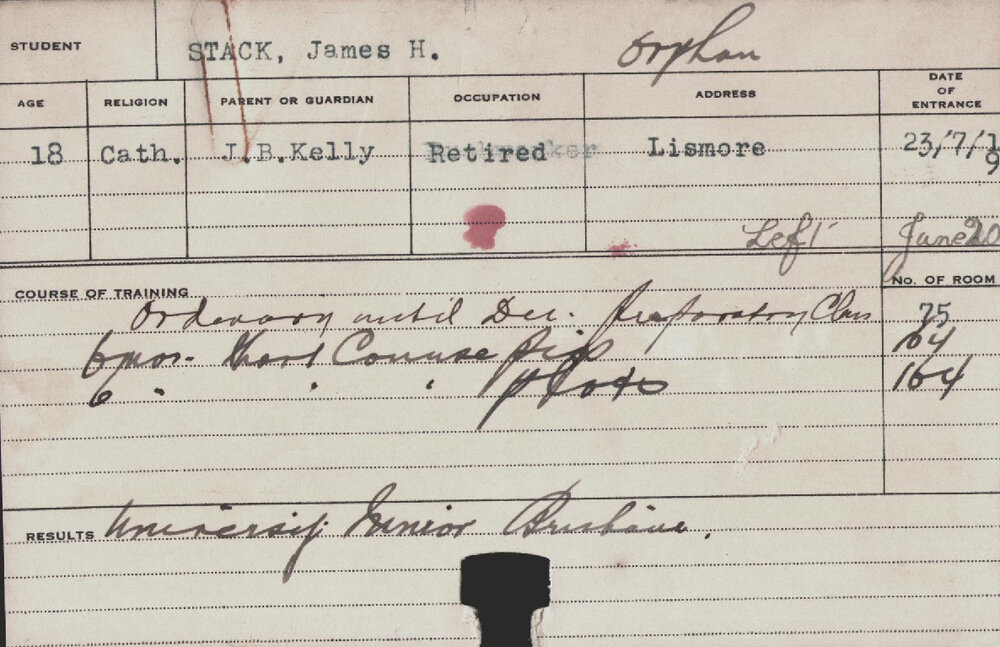 STUDENT STACK, James H. Orphan
AGE RELIGION PARENT OR GUARDIAN OCCUPATION ADDRESS DATE OF ENTRANCE
18 Cath. J.B.Kelly Retired Lismore 23/7/19
Left June 20
COURSE OF TRAINING No. OF ROOM
Ordinary until Dec. Preparatory Class 75
6 mos. Short Course Pigs 164
6 " " " 164
RESULTS University Junior Brisbane.